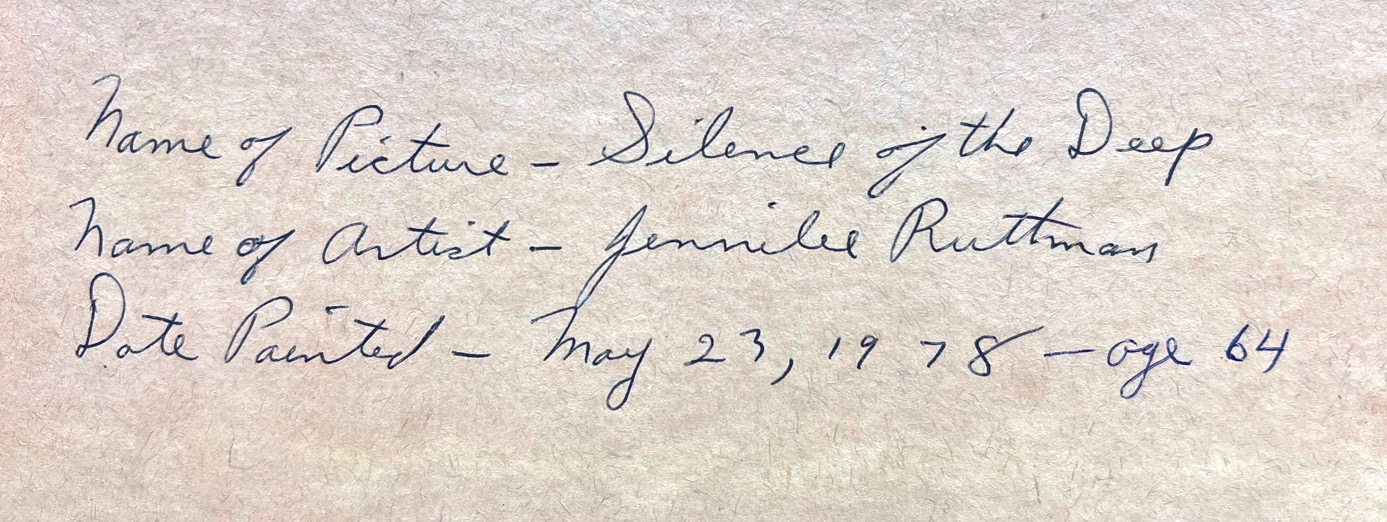 Name of Picture – Silence of the Deep
Name of Artist – Jennilee Ruttman
Date Painted – May 23, 1978 – age 64